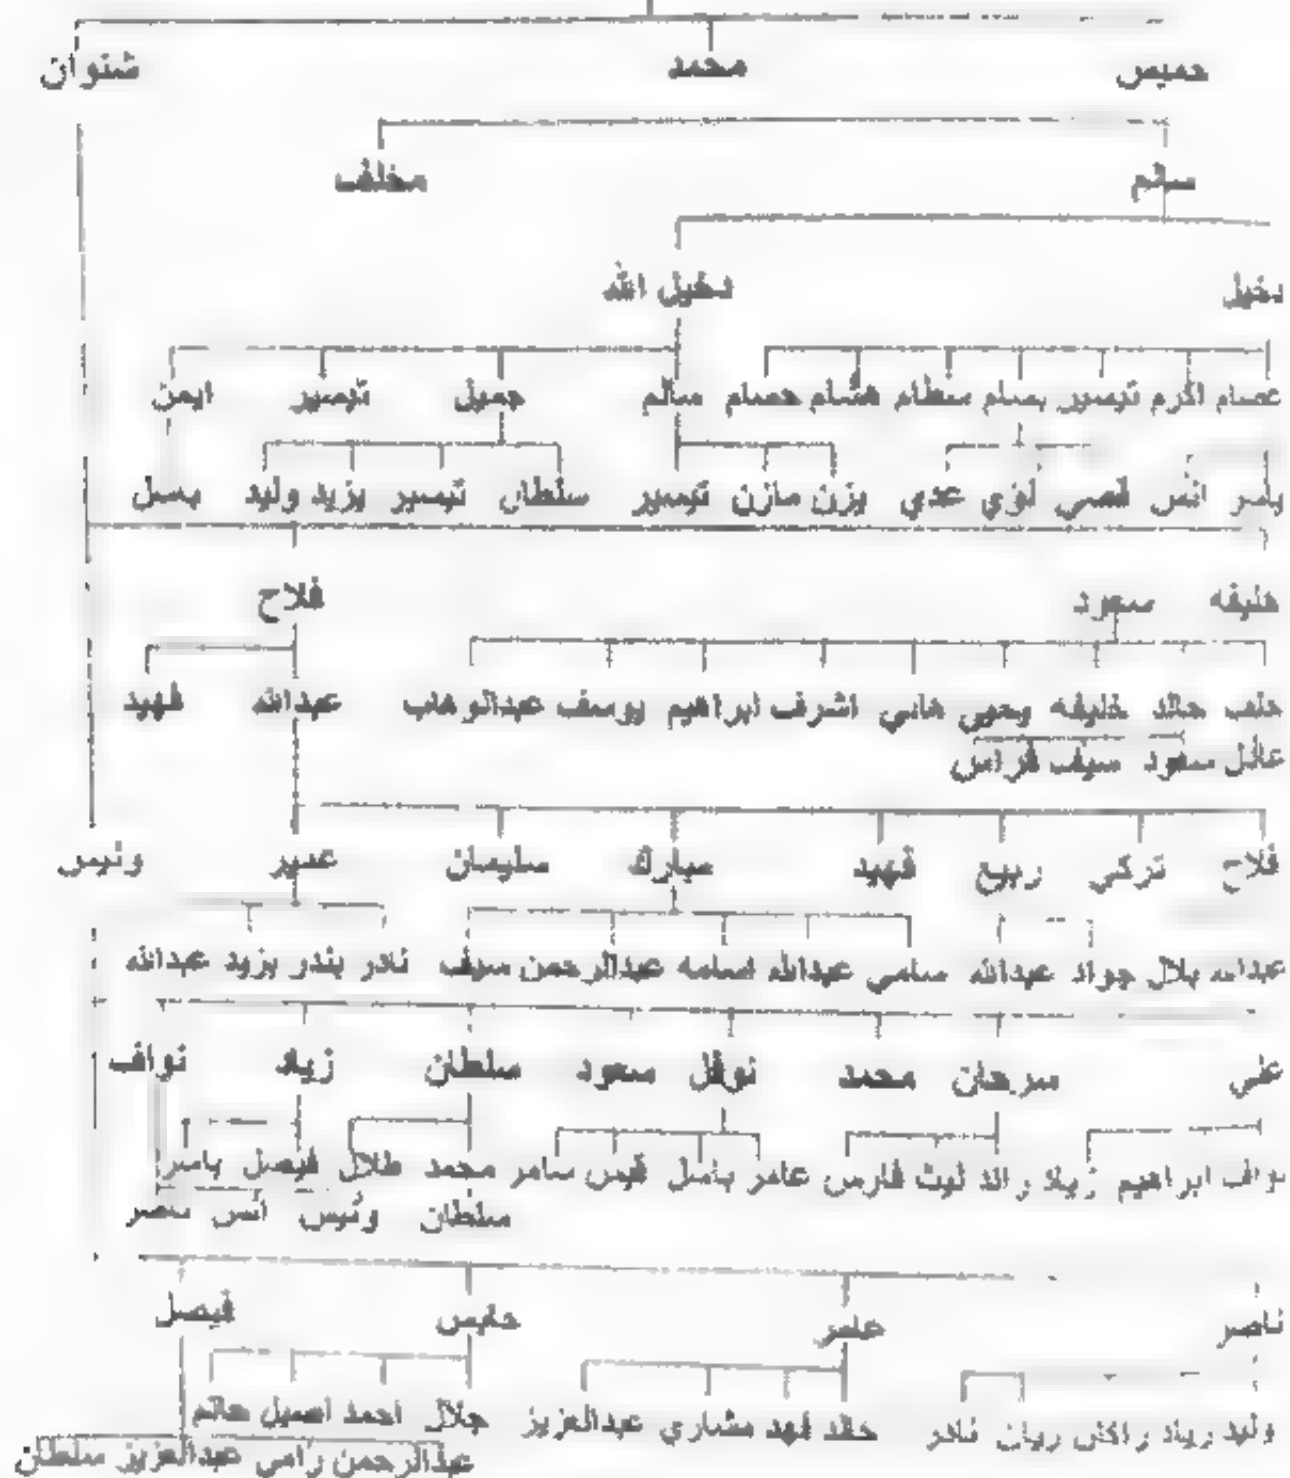 حميص محمد شنوان
سالم مخلف
دخيل دخيل الله
عصام اكرم تيسير بسام سطام هشام حسام سالم جميل تيسير ايمن
ياسر انس قصي لؤي عدي يزن مازن تيسير سلطان تيسير يزيد وليد باسل
خليفه سعود فلاح
خلف خالد خليفه يحيى هاني اشرف ابراهيم يوسف عبدالوهاب عبدالله فهيد
سعود سيف فراس
فلاح تركي ربيع فهيد مبارك سليمان عمير ونيس
عبدالله بلال جواد عبدالله سامي عبدالله اسامه عبدالرحمن سيف نادر بندر يزيد عبدالله
علي سرحان محمد نوفل سعود سلطان زياد نواف
نواف ابراهيم زياد رائد ليث فارس عامر باسل قيس سامر محمد طلال فيصل ياسر
سلطان ونيس انس ناصر
ناصر عامر حابس فيصل
وليد زياد راكان ريان نادر خالد فهد مشاري عبدالعزيز جلال احمد اصيل حاتم
عبدالرحمن رامي عبدالعزيز سلطان